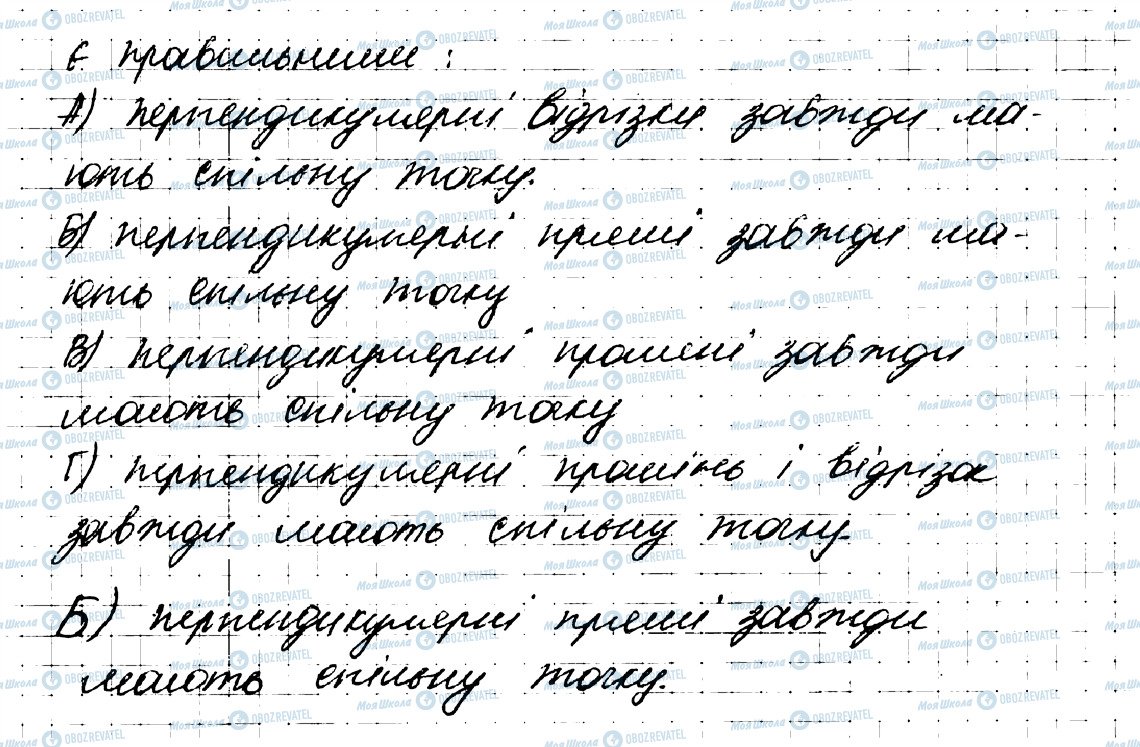 є правильними :
А) перпендикулярні відрізки завжди ма-
ють спільну точку.
Б) перпендикулярні прямі завжди ма-
ють спільну точку
В) перпендикулярні промені завжди
мають спільну точку
Г) перпендикулярні промінь і відрізок
завжди мають спільну точку.
Б) перпендикулярні прямі завжди
мають спільну точку.